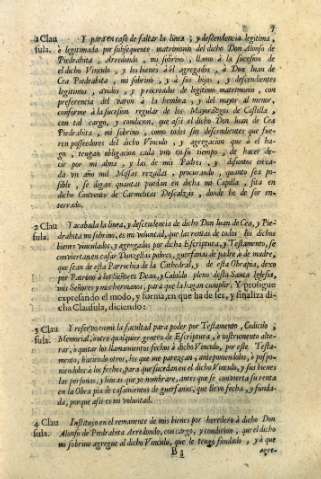 7
1 Clau Y para en caso de faltar la linea, y descendencia legitima,
sula. ò legitimada por subsequente matrimonio del dicho Don Alonso de
Piedrabita, Arredondo, mi sobrino, llamo à la sucesion de
el dicho Vinculo, y los bienes à èl agregados, à Don Juan de
Cea Piedrabita, mi sobrino, y à sus hijos, y descendientes
legitimos, avidos, y procreados de legitimo matrimonio, con
preferencia del varon à la hembra, y del mayor al menor,
conforme à la sucesion regular de los Mayorazgos de Castilla,
con tal cargo, y condicion, que assi el dicho Don Juan de Cea
Piedrabita, mi sobrino, como todos sus descendientes que fue-
ren posseedores del dicho Vinculo, y agregacion que à èl ha-
go, tengan obligacion cada uno en su tiempo, de hacer de-
cir por mi alma, y las de mis Padres, y difuntos ca-
da un año mil Missas rezadas, procurando, quanto sea po-
sible, se digan quantas puedan en dicha mi Capilla, sita en
dicho Convento de Carmelitas Descalzas, donde he de ser en-
terrado.
2 Clau Y acabada la linea, y descendencia de dicho Don Juan de Cea, y Pie-
sula. drabita mi sobrino, es mi voluntad, que las rentas de todos los dichos
bienes vinculados, y agregados por dicha Escriptura, y Testamento, se
conviertan en casar Donzellas pobres, guerfanas de padre, ò de madre,
que sean de esta Parrochia de la Cathedral, y de esta Obrapia, dexo
por Patrono à los Señores Dean, y Cabildo pleno desta Santa Iglesia,
mis Señores, y mis hermanos, para que la hagan cumplir. Y prosigue
expresando el modo, y forma, en que ha de ser, y finaliza di-
cha Clausula, diciendo:
3 Clau Y reservo en mi la facultad para poder por Testamento, Codicilo,
sula. Memorial, ù otro qualquier genero de Escriptura, ò instrumento alte-
rar, ò quitar los llamamientos fechos à dicho Vinculo, por este Testa-
mento, haciendo otros, los que me parezcan, anteponiendolos, ò pospo-
niendolos à los fechos, para que sucedan en el dicho Vinculo, y sus bienes
las personas, y lineas que yo nombrare, antes que se convierta su renta
en la Obra pia de casamientos de guerfanas, que llevo fecha, y funda-
da, porque assi es mi voluntad.
4 Clau Instituyo en el remanente de mis bienes por heredero à dicho Don
sula. Alonso de Piedrabita Arredondo, con cargo, y condicion, que el dicho
mi sobrino agregue al dicho Vinculo, que le tengo fundado, y à que
agre-